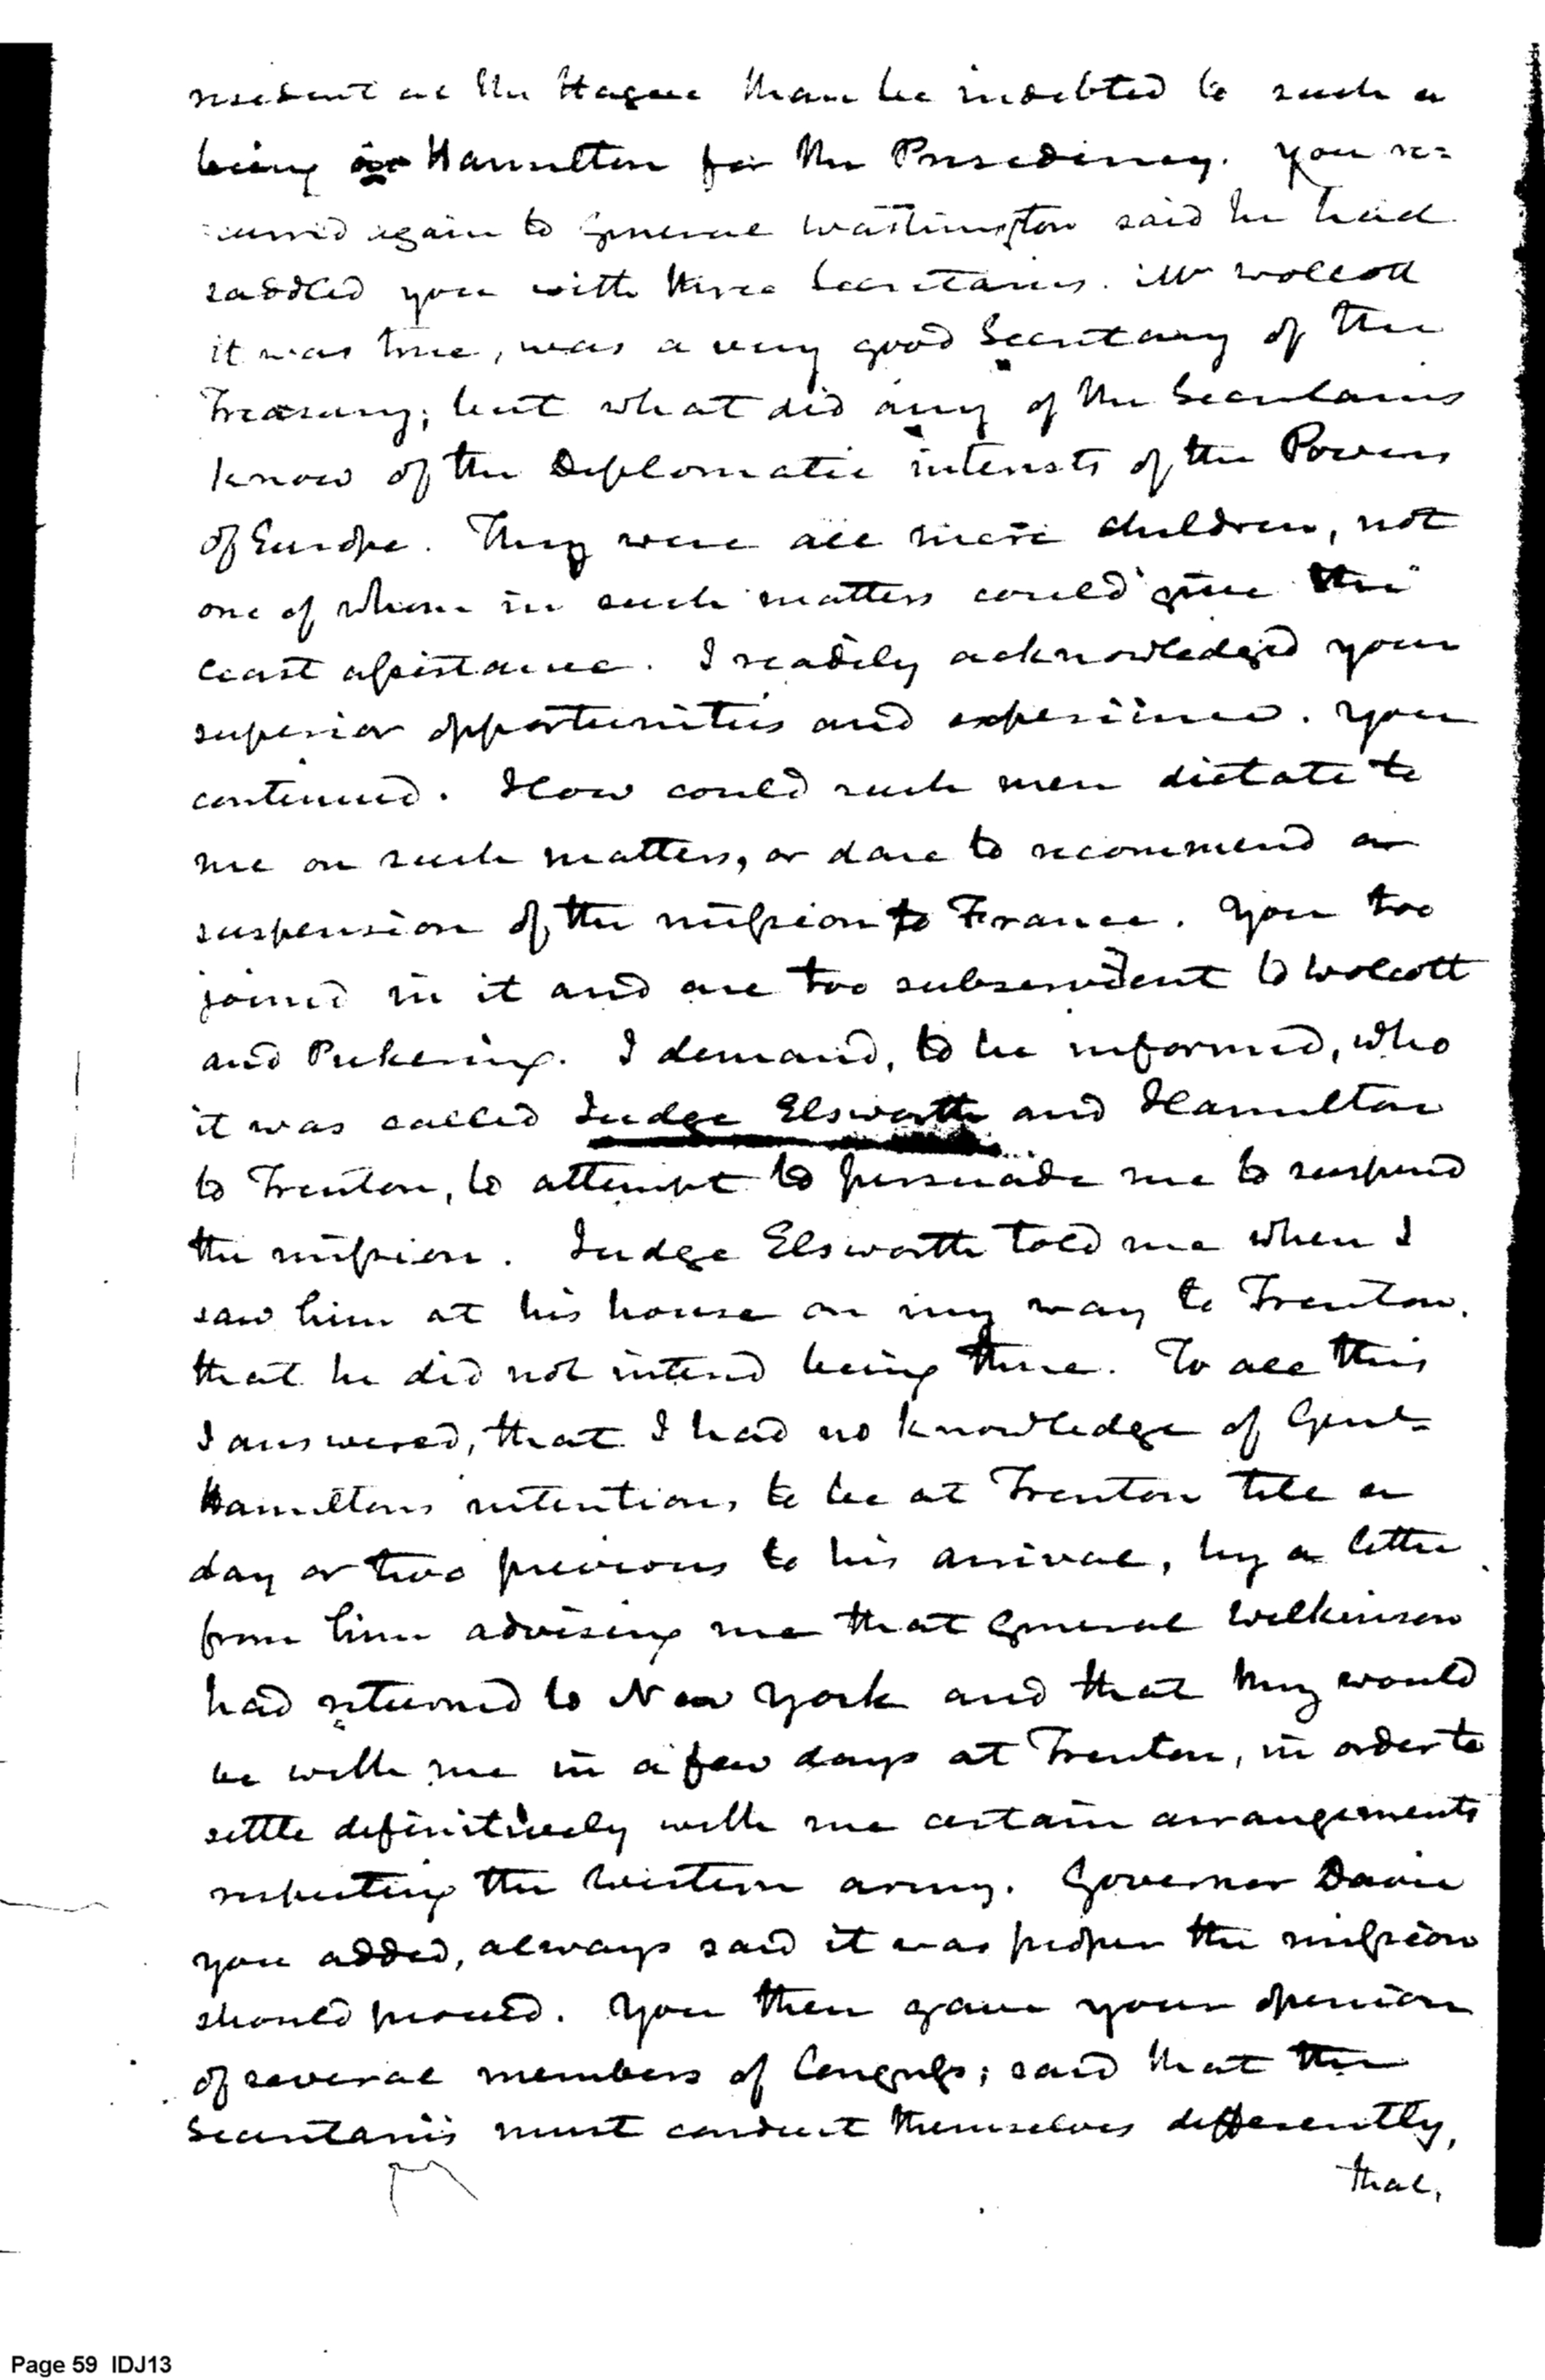 resident at the Hague than be indebted to such a
being as Hamilton for the Presidency. you re=
=curred again to General Washington said he had
saddled you with three Secretaries. Mr Wolcott
it was true, was a very good Secretary of the
Treasury; but what did any of the Secretaries
know of the Diplomatic interests of the Powers
of Europe. They were all mere children, not
one of whom in such matters could give the
least assistance. I readily acknowledged your
superior opportunities and experience. you
continued. How could such men dictate to
me on such matters, or dare to recommend a
suspension of the mission to France. You too
joined in it and are too subservient to Wolcott
and Pickering. I demand, to be informed, who
it was called Judge Elsworth and Hamilton
to Trenton, to attempt to persuade me to suspend
the mission. Judge Elsworth told me when I
saw him at his house on my way to Trenton,
that he did not intend being there. To all this
I answered, that I had no knowledge of Genl
Hamiltons intentions to be at Trenton till a
day or two previous to his arrival, by a letter
from him advising me that General Wilkinson
had returned to New York and that they would
be with me in a few days at Trenton, in order to
settle definitively with me certain arrangements
respecting the Western army. Governor Davie
you added, always said it was proper the mission
should proceed. You then gave your opinion
of several members of Congress; said that the
Secretaries must conduct themselves differently,
that,
Page 59 IDJ13